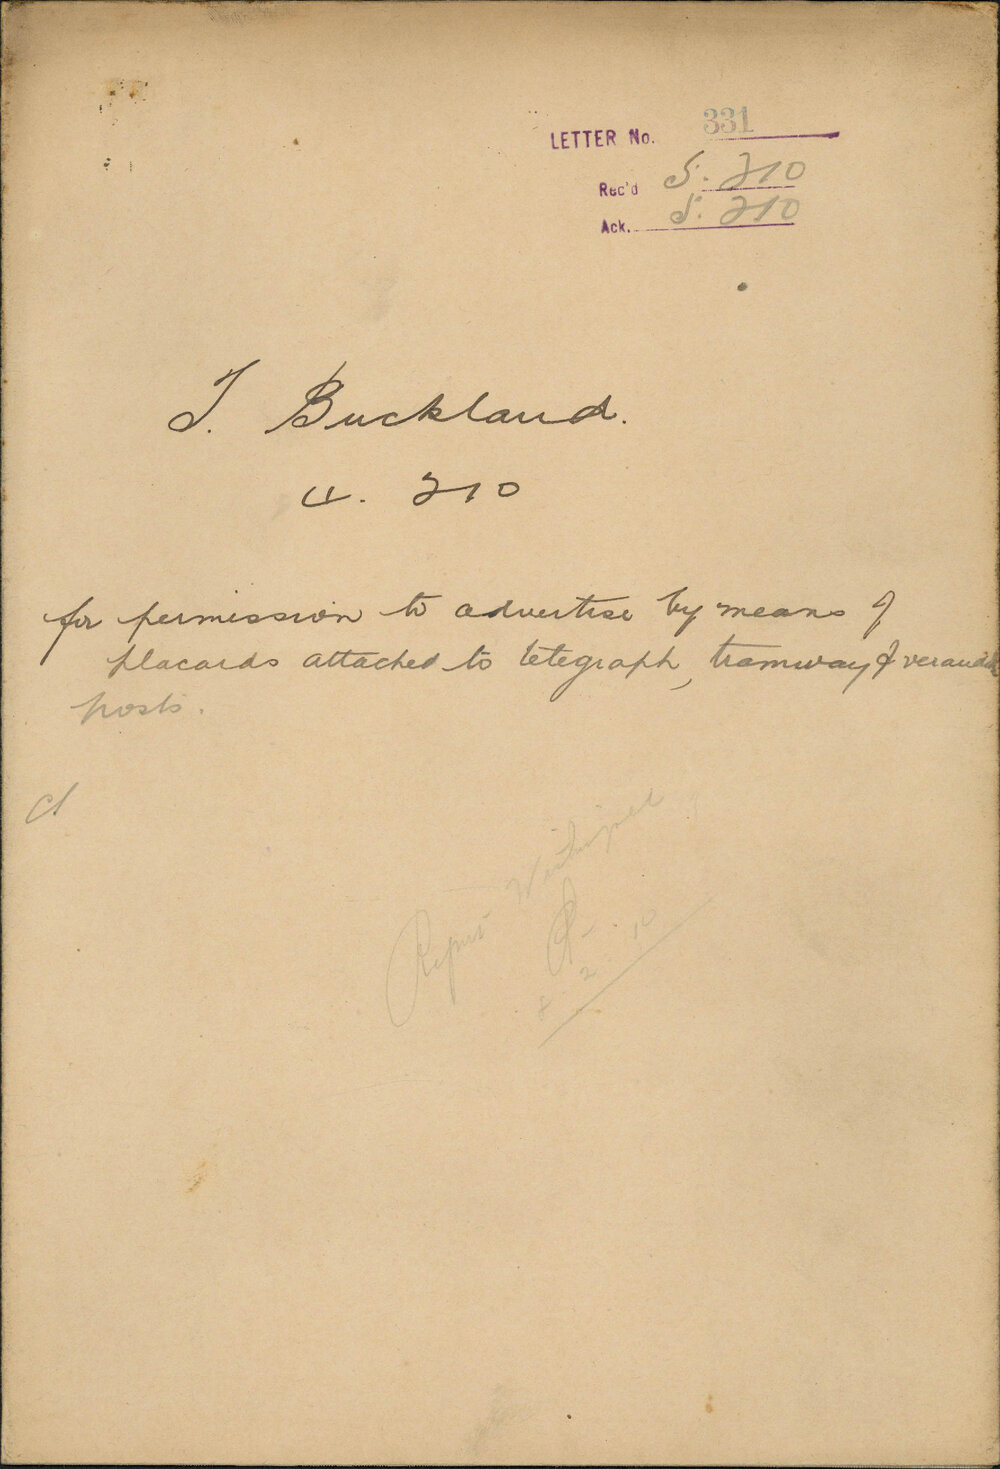 LETTER No. 331
Rec'd 5. 2 10
Ack. 5. 2 10
T. Buckland.
4. 2 10
for permission to advertise by means of
placards attached to telegraph, tramway & verandah
posts.
Report
8. 2. 10